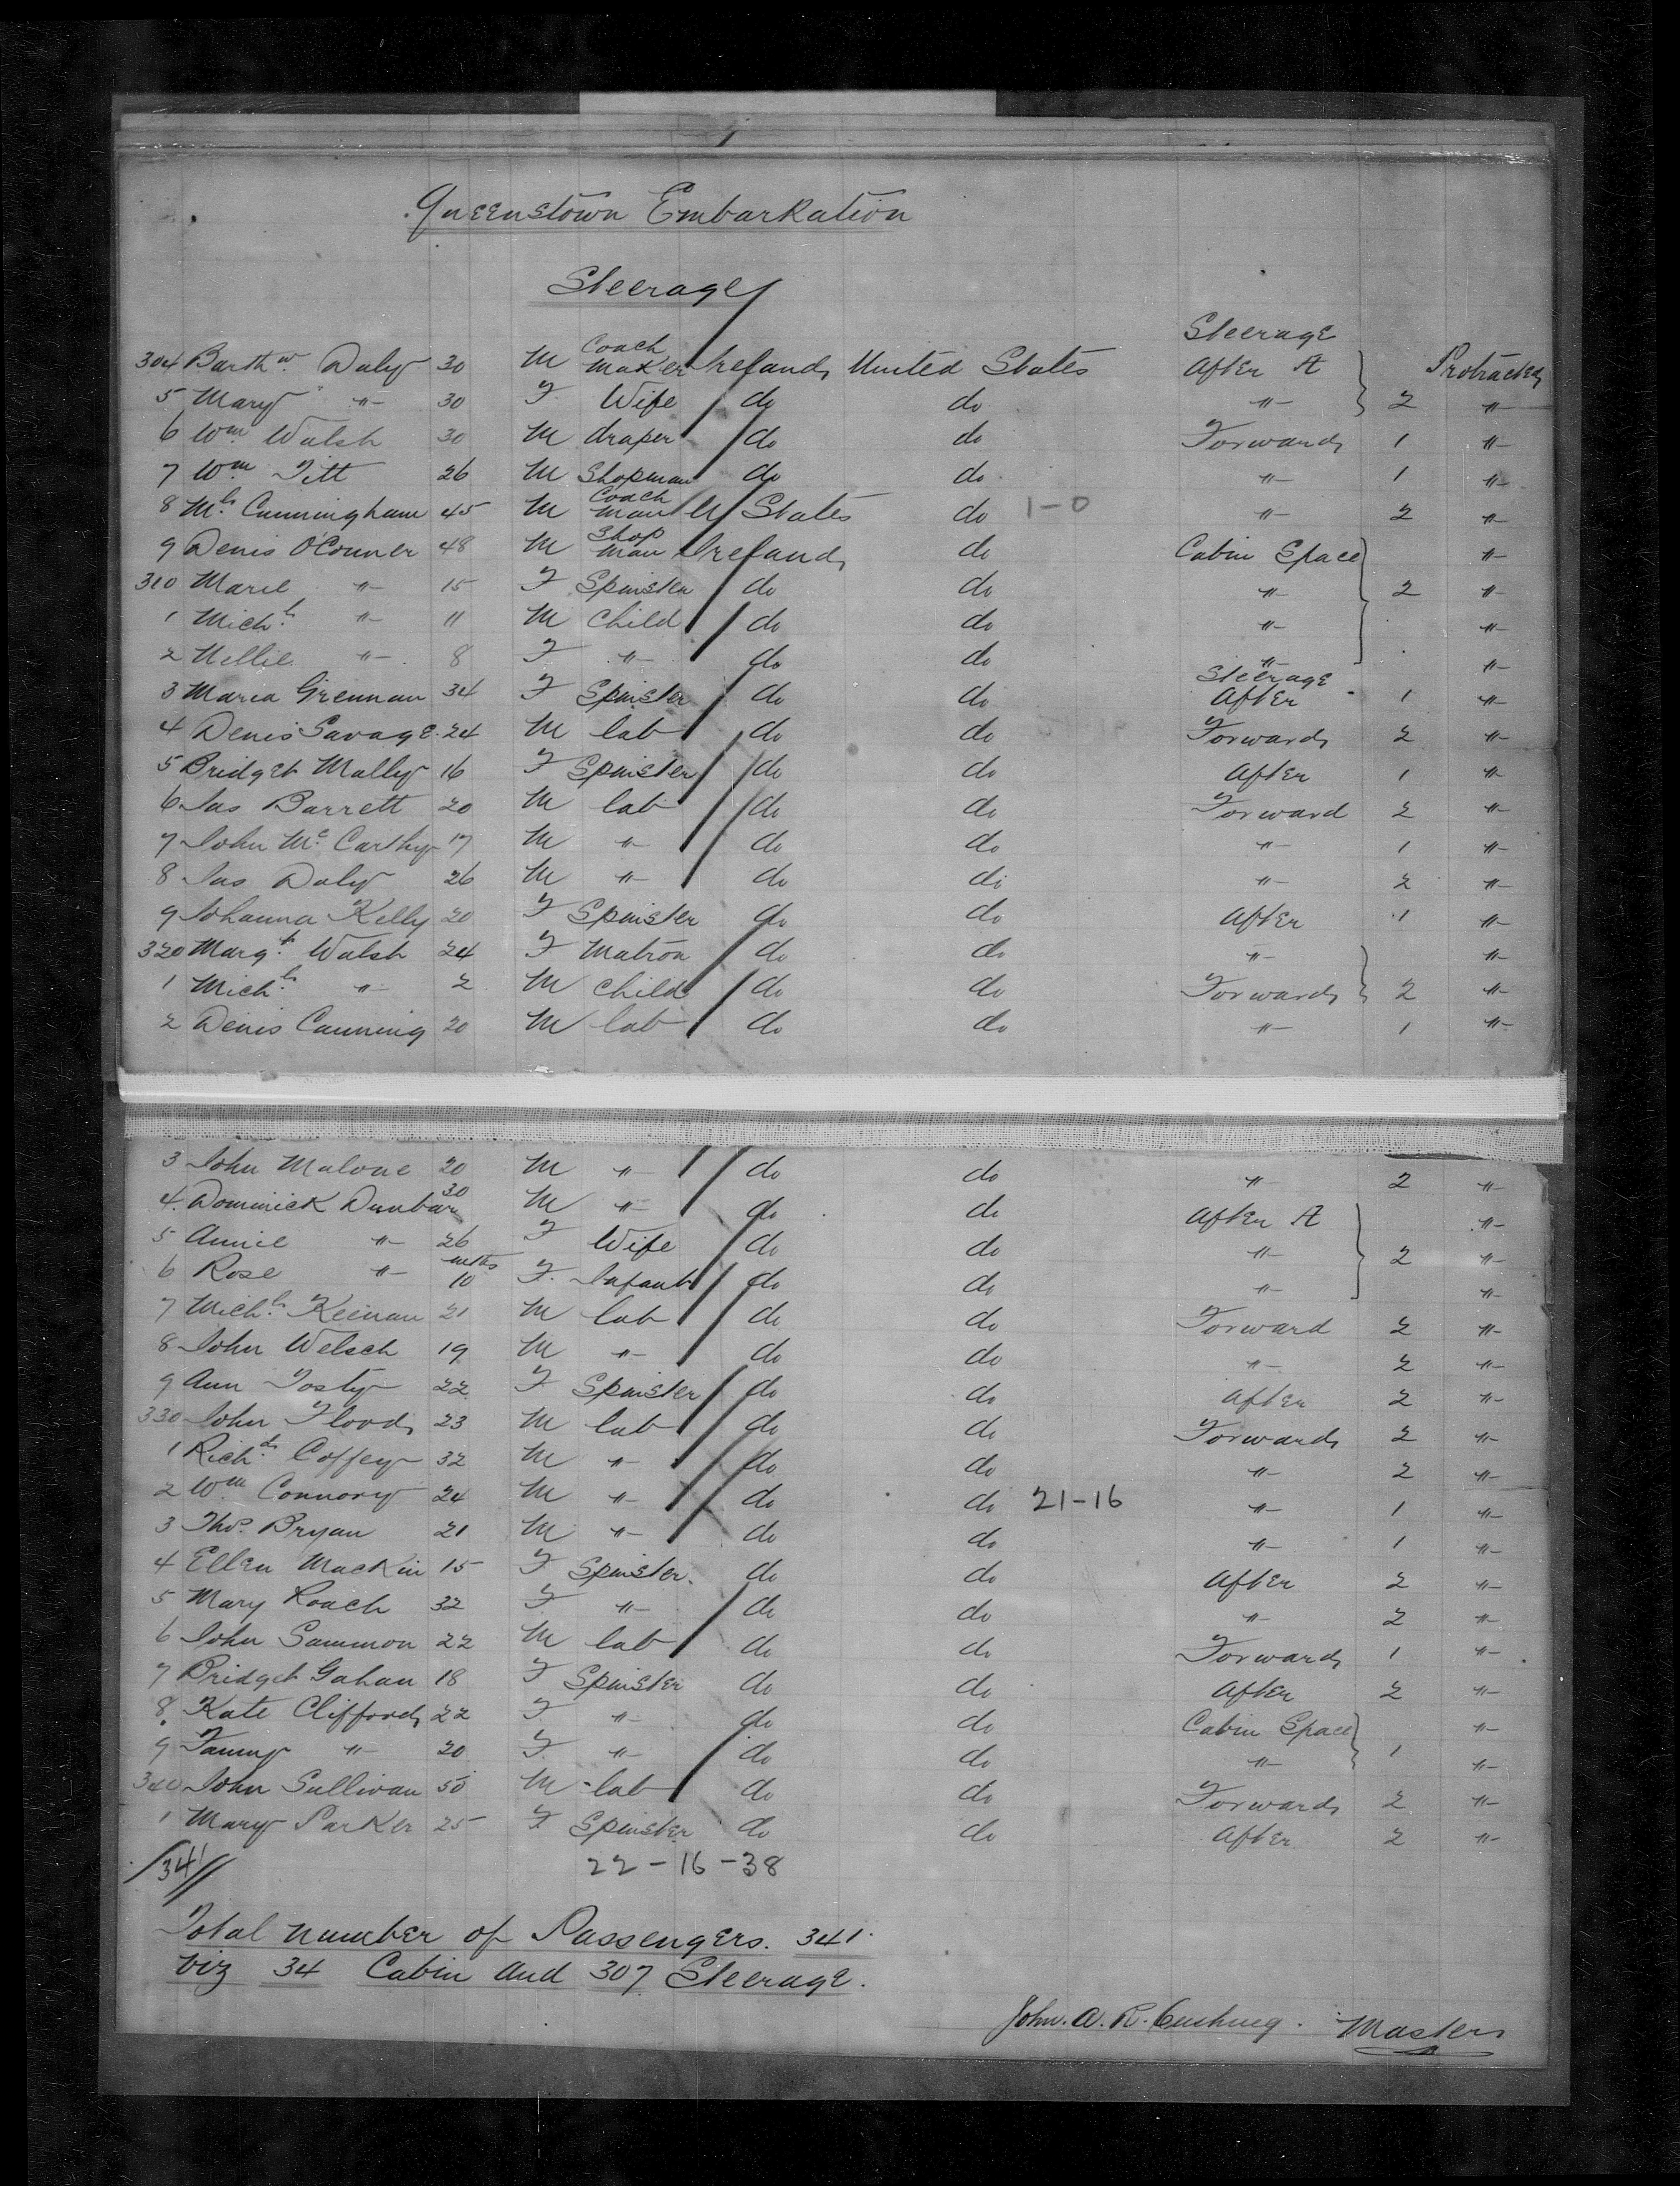 Queenstown Embarkation
Steerage
Steerage
304 Barthw. Daly 30 M Coach Maker Ireland United States After A Protracted
5 Mary " 30 F Wife do do " 2 "
6 Wm Walsh 30 M draper do do Forward 1 "
7 Wm. Titt 26 M Shopman do do " 1 "
8 Ml. Cunningham 45 M Coach man U States do 1-0 " 2 "
9 Denis OConner 48 M Shop man Ireland do Cabin Space "
310 Marie " 15 F Spinster do do " 2 "
1 Michl. " 11 M Child do do " "
2 Nellie " 8 F " do do " "
Steerage
3 Maria Grennan 34 F Spinster do do After 1 "
4 Denis Savage 24 M lab do do Forward 2 "
5 Bridget Mally 16 F Spinster do do After 1 "
6 Jas Barrett 20 M lab do do Forward 2 "
7 John Mc Carthy 17 M " do do " 1 "
8 Jas Daly 26 M " do do " 2 "
9 Johanna Kelly 20 F Spinster do do After 1 "
320 Margt. Walsh 24 F Matron do do " "
1 Michl. " 2 M Child do do Forward 2 "
2 Denis Canning 20 M lab do do " 1 "
3 John Malone 20 M " do do " 2 "
4 Dominick Dunbar 30 M " do do After A "
5 Annie " 26 F Wife do do " 2 "
6 Rose " mths 10 F. Infant do do " "
7 Michl. Keenan 21 M lab do do Forward 2 "
8 John Welsch 19 M " do do " 2 "
9 Ann Tosty 22 F Spinster do do After 2 "
330 John Flood 23 M lab do do Forward 2 "
1 Richd. Coffey 32 M " do do " 2 "
2 Wm Connory 24 M " do do 21-16 " 1 "
3 Thos. Bryan 21 M " do do " 1 "
4 Ellen Mackin 15 F Spinster. do do After 2 "
5 Mary Roach 32 F " do do " 2 "
6 John Sammon 22 M lab do do Forward 1 "
7 Bridget Gahan 18 F Spinster do do After 2 "
8 Kate Clifford 22 F " do do Cabin Space "
9 Fanny " 20 F " do do " 1 "
340 John Sullivan 50 M lab do do Forward 2 "
1 Mary Parker 25 F Spinster do do After 2 "
/341// 22-16-38
Total number of Passengers. 341.
Viz 34 Cabin and 307 Steerage.
John. A. R. Cushing. Master